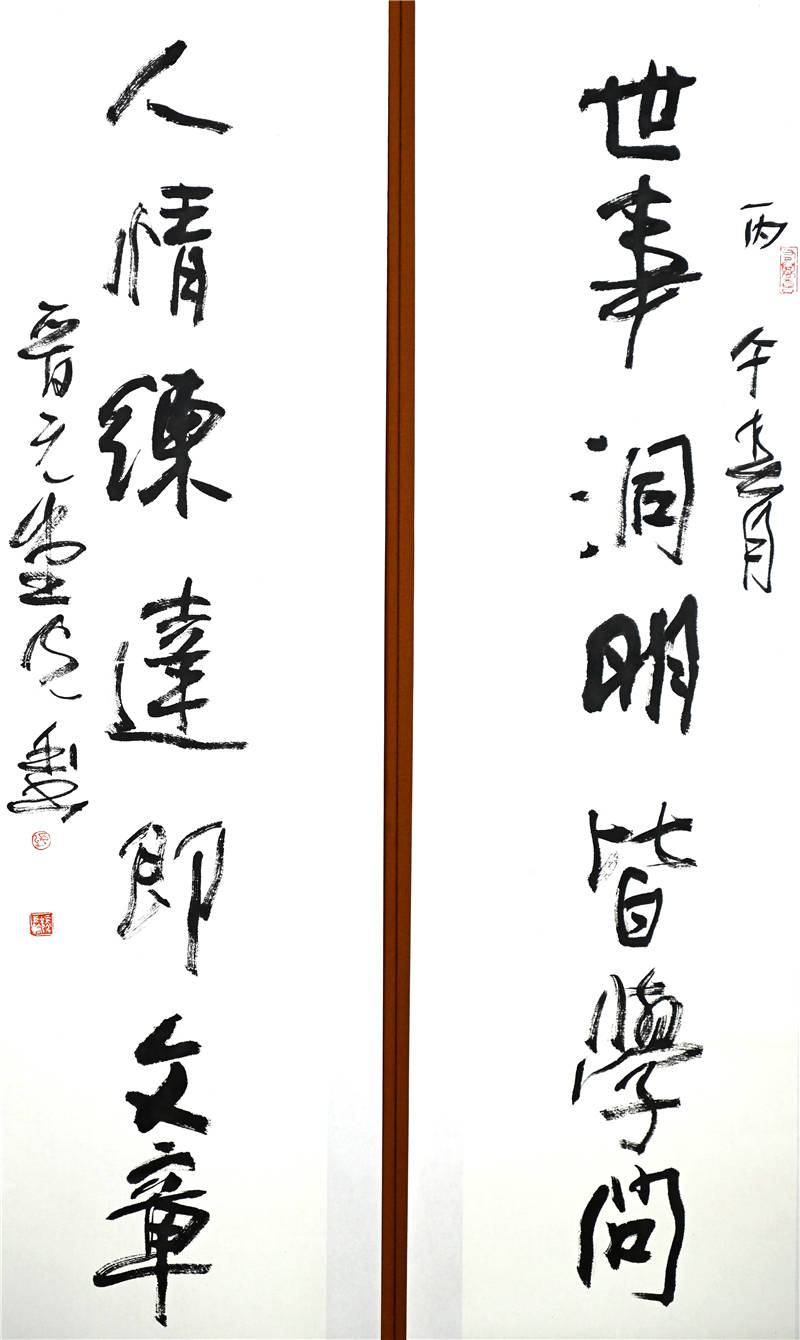 丙午春月
世事洞明皆學問
人情練達即文章
晉元堂